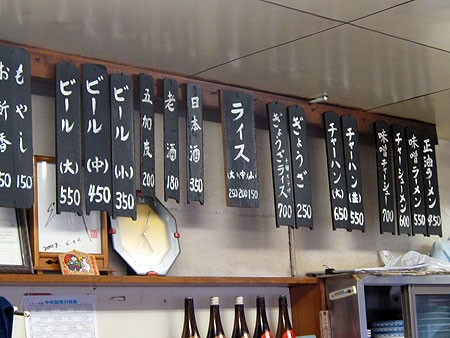 正油ラーメン 450
味噌ラーメン 550
チャーシューメン 600
味噌チャーシュー 700
チャーハン(並) 550
チャーハン(大) 650
ぎょうざ 250
ぎょうざライス 700
ライス (大)(中)(小) 250 200 150
日本酒 350
老酒 180
五加皮 200
ビール(小) 350
ビール(中) 450
ビール(大) 550
もやし 150
お新香 150